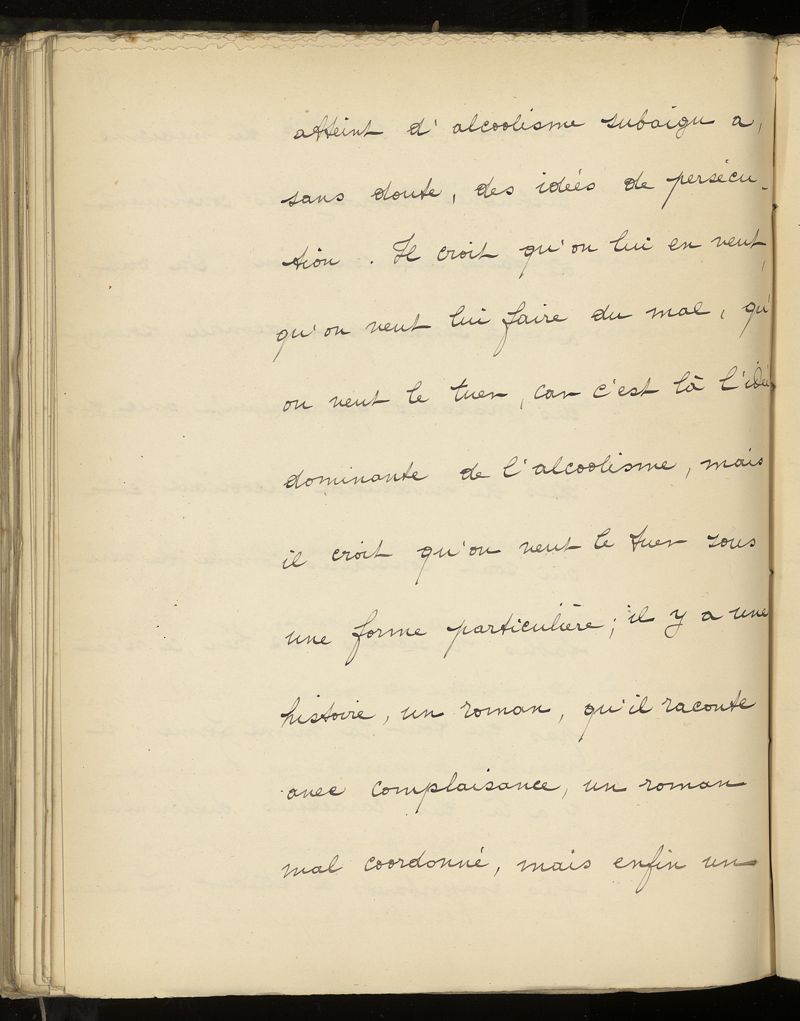 atteint d'alcoolisme subaigu a,
sans doute, des idées de persécu-
tion. Il croit qu'on lui en veut,
qu'on veut lui faire du mal, qu'
on veut le tuer, car c'est là l'idée
dominante de l'alcoolisme, mais
il croit qu'on veut le tuer sous
une forme particulière; il y a une
histoire, un roman, qu'il raconte
avec complaisance, un roman
mal coordonné, mais enfin un